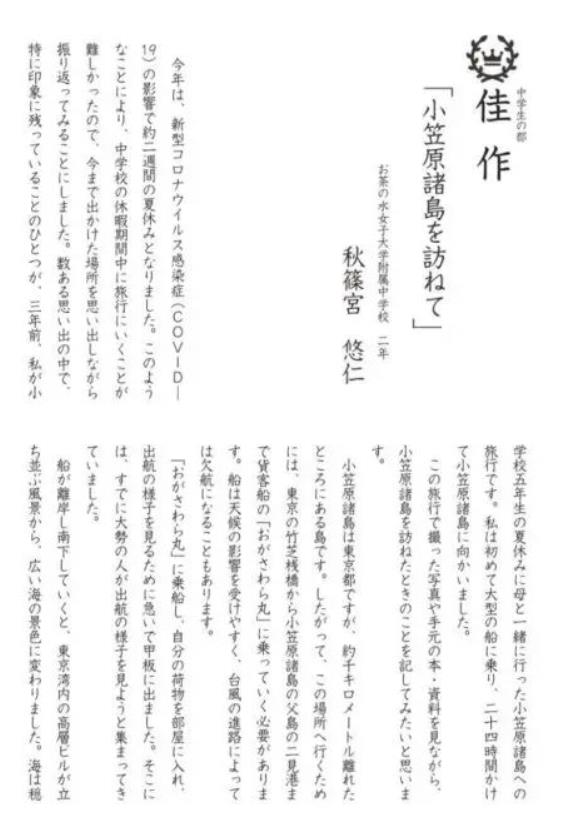 中学生の部
佳作
「小笠原諸島を訪ねて」
お茶の水女子大学附属中学校　二年
秋篠宮　悠仁
今年は、新型コロナウイルス感染症（COVID―
19）の影響で約二週間の夏休みとなりました。このよう
なことにより、中学校の休暇期間中に旅行にいくことが
難しかったので、今まで出かけた場所を思い出しながら
振り返ってみることにしました。数ある思い出の中で、
特に印象に残っていることのひとつが、三年前、私が小
学校五年生の夏休みに母と一緒に行った小笠原諸島への
旅行です。私は初めて大型の船に乗り、二十四時間かけ
て小笠原諸島に向かいました。
この旅行で撮った写真や手元の本・資料を見ながら、
小笠原諸島を訪ねたときのことを記してみたいと思いま
す。
小笠原諸島は東京都ですが、約千キロメートル離れた
ところにある島です。したがって、この場所へ行くため
には、東京の竹芝桟橋から小笠原諸島の父島の二見港ま
で貨客船の「おがさわら丸」に乗っていく必要がありま
す。船は天候の影響を受けやすく、台風の進路によって
は欠航になることもあります。
「おがさわら丸」に乗船し、自分の荷物を部屋に入れ、
出航の様子を見るために急いで甲板に出ました。そこに
は、すでに大勢の人が出航の様子を見ようと集まってき
ていました。
船が離岸し南下していくと、東京湾内の高層ビルが立
ち並ぶ風景から、広い海の景色に変わりました。海は穏